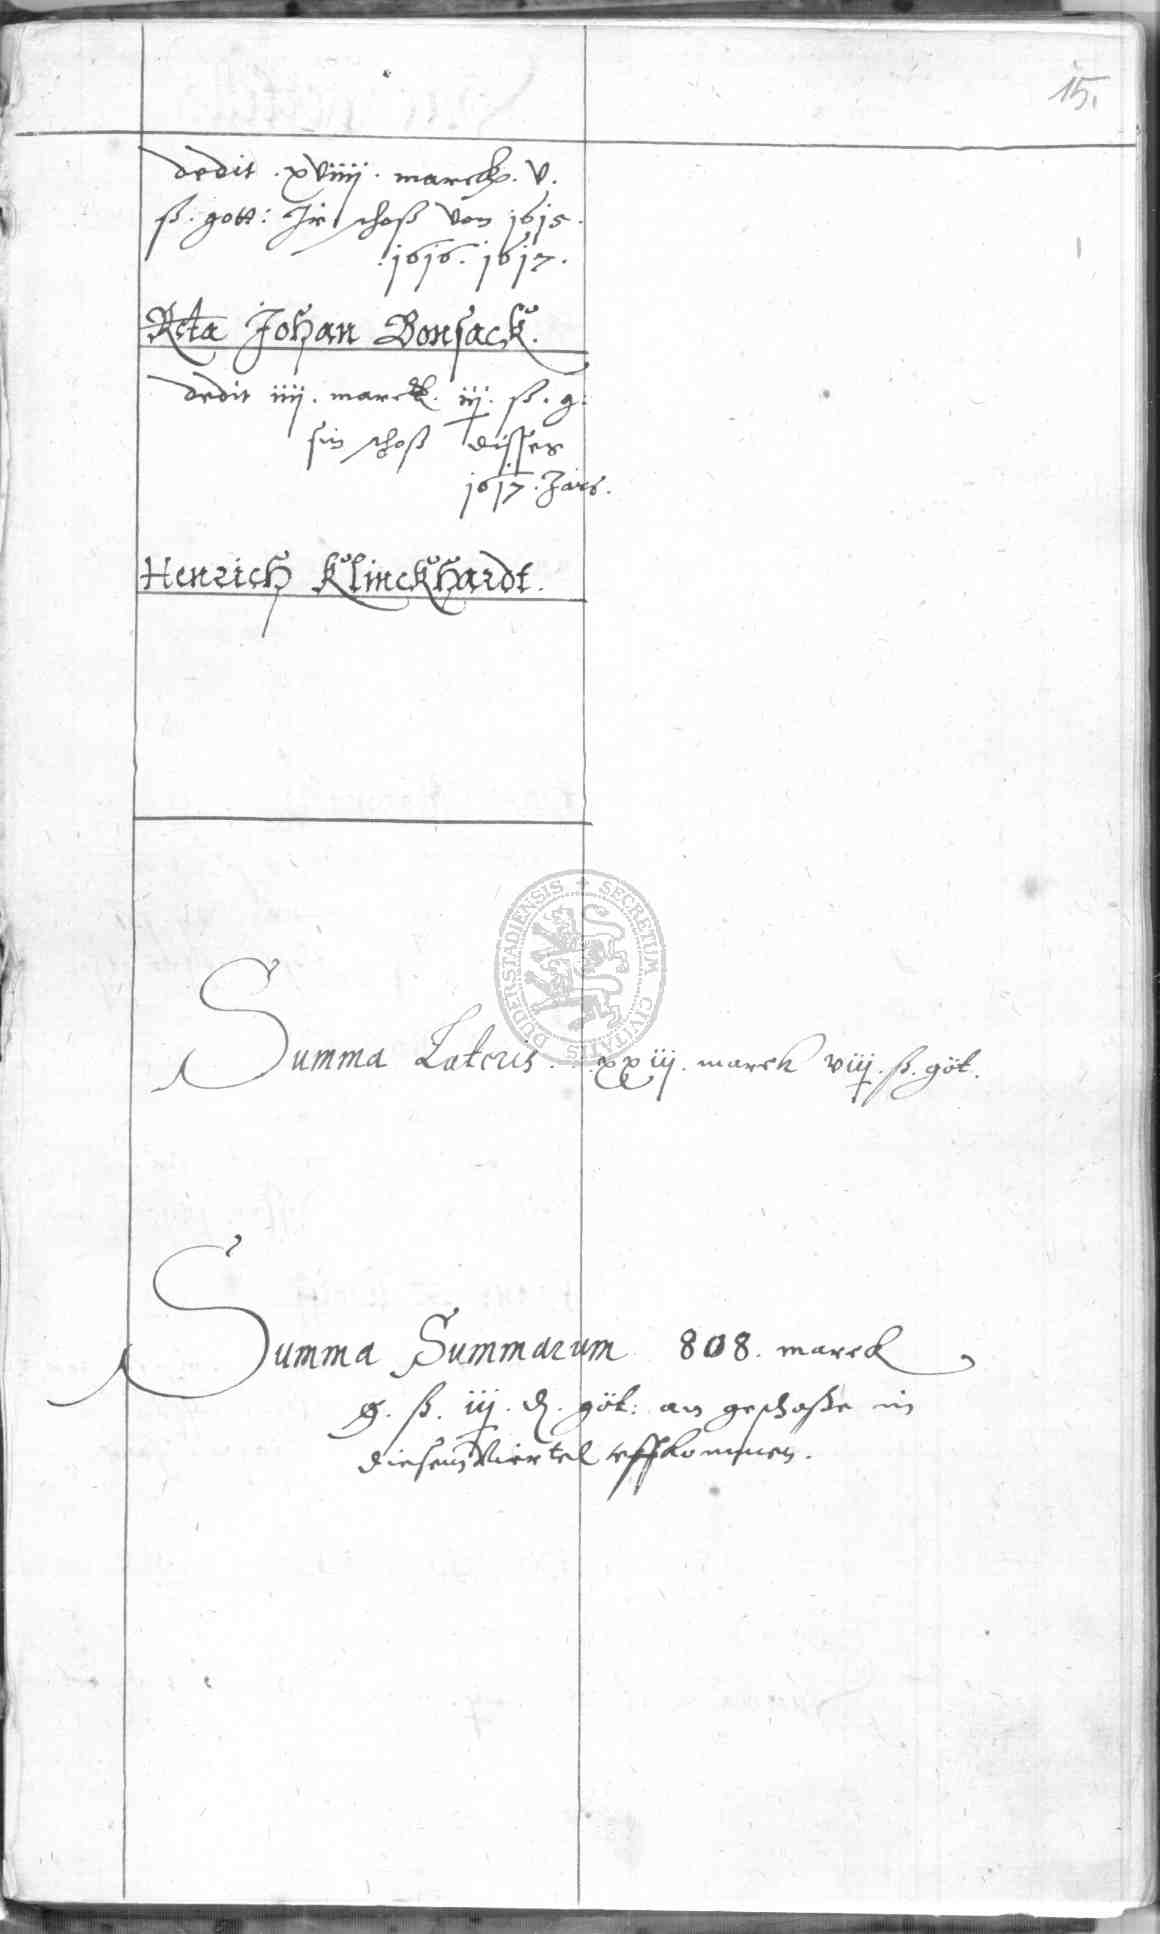 15.
dedit . xviiij . marck . v .
ß . gott : Ir schoß von 1615 .
. 1616 . 1617 .
Rcta Johan Bonsack .
dedit iiij . marck . iij . ß . g :
sin schoß disses
1617 . Jars .
Henrich Klinckhardt .
DUDERSTADIENSIS + SECRETUM CIVITATIS
Summa Lateris . . xxiij . marck viij . ß . göt .
Summa Summarum 808 . marck
ß . iij . d . göt : an geschoße in
diesem Viertel uffkommen .